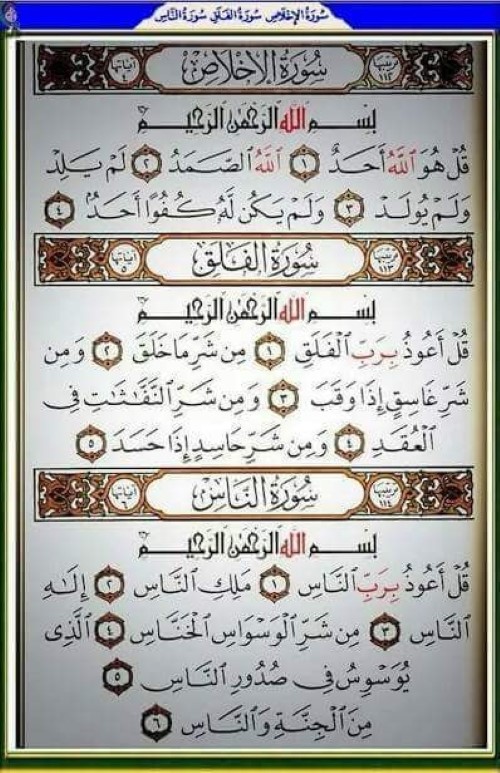 سورة الإخلاص سورة الفلق سورة الناس
ترتيبها ١١٢ سُورَةُ الإِخْلَاصِ آياتها ٤
بِسْمِ ٱللَّهِ ٱلرَّحْمَٰنِ ٱلرَّحِيمِ
قُلْ هُوَ ٱللَّهُ أَحَدٌ ١ ٱللَّهُ ٱلصَّمَدُ ٢ لَمْ يَلِدْ
وَلَمْ يُولَدْ ٣ وَلَمْ يَكُن لَّهُ كُفُوًا أَحَدٌ ٤
ترتيبها ١١٣ سُورَةُ الفَلَقِ آياتها ٥
بِسْمِ ٱللَّهِ ٱلرَّحْمَٰنِ ٱلرَّحِيمِ
قُلْ أَعُوذُ بِرَبِّ ٱلْفَلَقِ ١ مِن شَرِّ مَا خَلَقَ ٢ وَمِن
شَرِّ غَاسِقٍ إِذَا وَقَبَ ٣ وَمِن شَرِّ ٱلنَّفَّٰثَٰتِ فِى
ٱلْعُقَدِ ٤ وَمِن شَرِّ حَاسِدٍ إِذَا حَسَدَ ٥
ترتيبها ١١٤ سُورَةُ النَّاسِ آياتها ٦
بِسْمِ ٱللَّهِ ٱلرَّحْمَٰنِ ٱلرَّحِيمِ
قُلْ أَعُوذُ بِرَبِّ ٱلنَّاسِ ١ مَلِكِ ٱلنَّاسِ ٢ إِلَٰهِ
ٱلنَّاسِ ٣ مِن شَرِّ ٱلْوَسْوَاسِ ٱلْخَنَّاسِ ٤ ٱلَّذِى
يُوَسْوِسُ فِى صُدُورِ ٱلنَّاسِ ٥
مِنَ ٱلْجِنَّةِ وَٱلنَّاسِ ٦